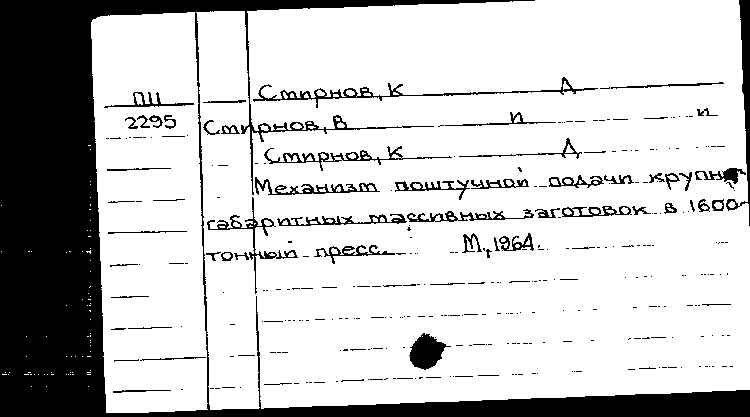 ПII Смирнов, К Д
2295 Смирнов, В п и
Смирнов, К Д
Механизм поштучной подачи крупно
габаритных массивных заготовок в 1600-
тонный пресс. М., 1964.